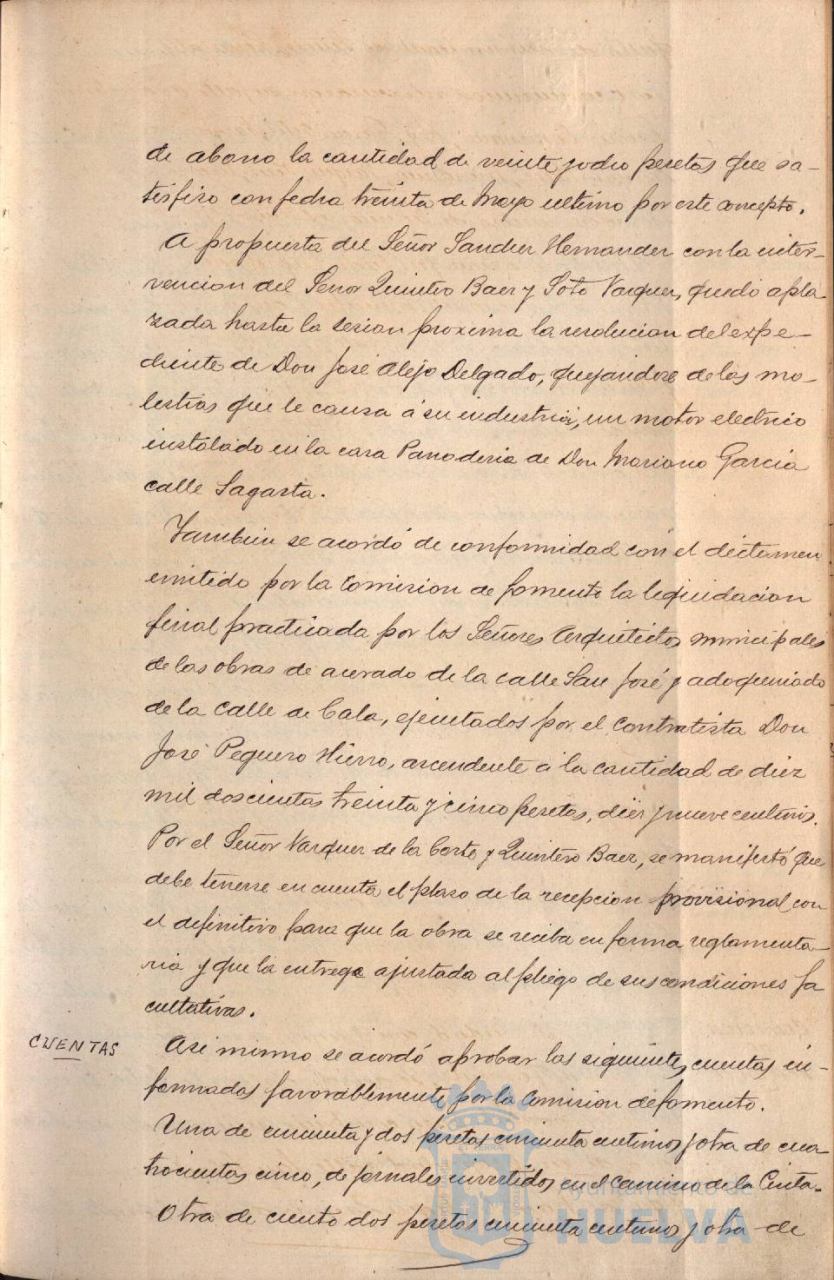 de abono la cantidad de veinte y ocho pesetas que sa-
tisfizo con fecha treinta de Mayo ultimo por este concepto.
A propuesta del Señor Sanchez Hernandez con la inter-
vencion del Señor Quintero Baez y Soto Vazquez, quedó apla-
zada hasta la sesion proxima la resolucion del expe-
diente de Don José Alejo Delgado, quejandose de las mo-
lestias que le causa á su industria, un motor electrico
instalado en la casa Panaderia de Don Mariano Garcia
calle Sagasta.
Tambien se acordó de conformidad con el dictamen
emitido por la Comision de fomento la liquidacion
final practicada por los Señores Arquitectos municipales
de las obras de acerado de la calle San José y adoquinado
de la calle de Cala, ejecutados por el contratista Don
José Peguero Hierro, ascendente á la cantidad de diez
mil doscientas treinta y cinco pesetas, diez y nueve centimos.
Por el Señor Vazquez de la Corte y Quintero Baez, se manifestó que
debe tenerse en cuenta el plaso de la recepcion provisional con
el definitivo para que la obra se reciba en forma reglamenta-
ria y que la entrega ajustada al pliego de sus condiciones fa
cultativas.
CUENTAS
Asi mismo se acordó aprobar las siguientes cuentas in-
formadas favorablemente por la Comision de fomento.
Una de cincuenta y dos pesetas cincuenta centimos y otra de cua
trocientas cinco, de jornales invertidos en el camino de la Cinta.
Otra de ciento dos pesetas cincuenta centimos y otra de
Ayuntamiento de
HUELVA